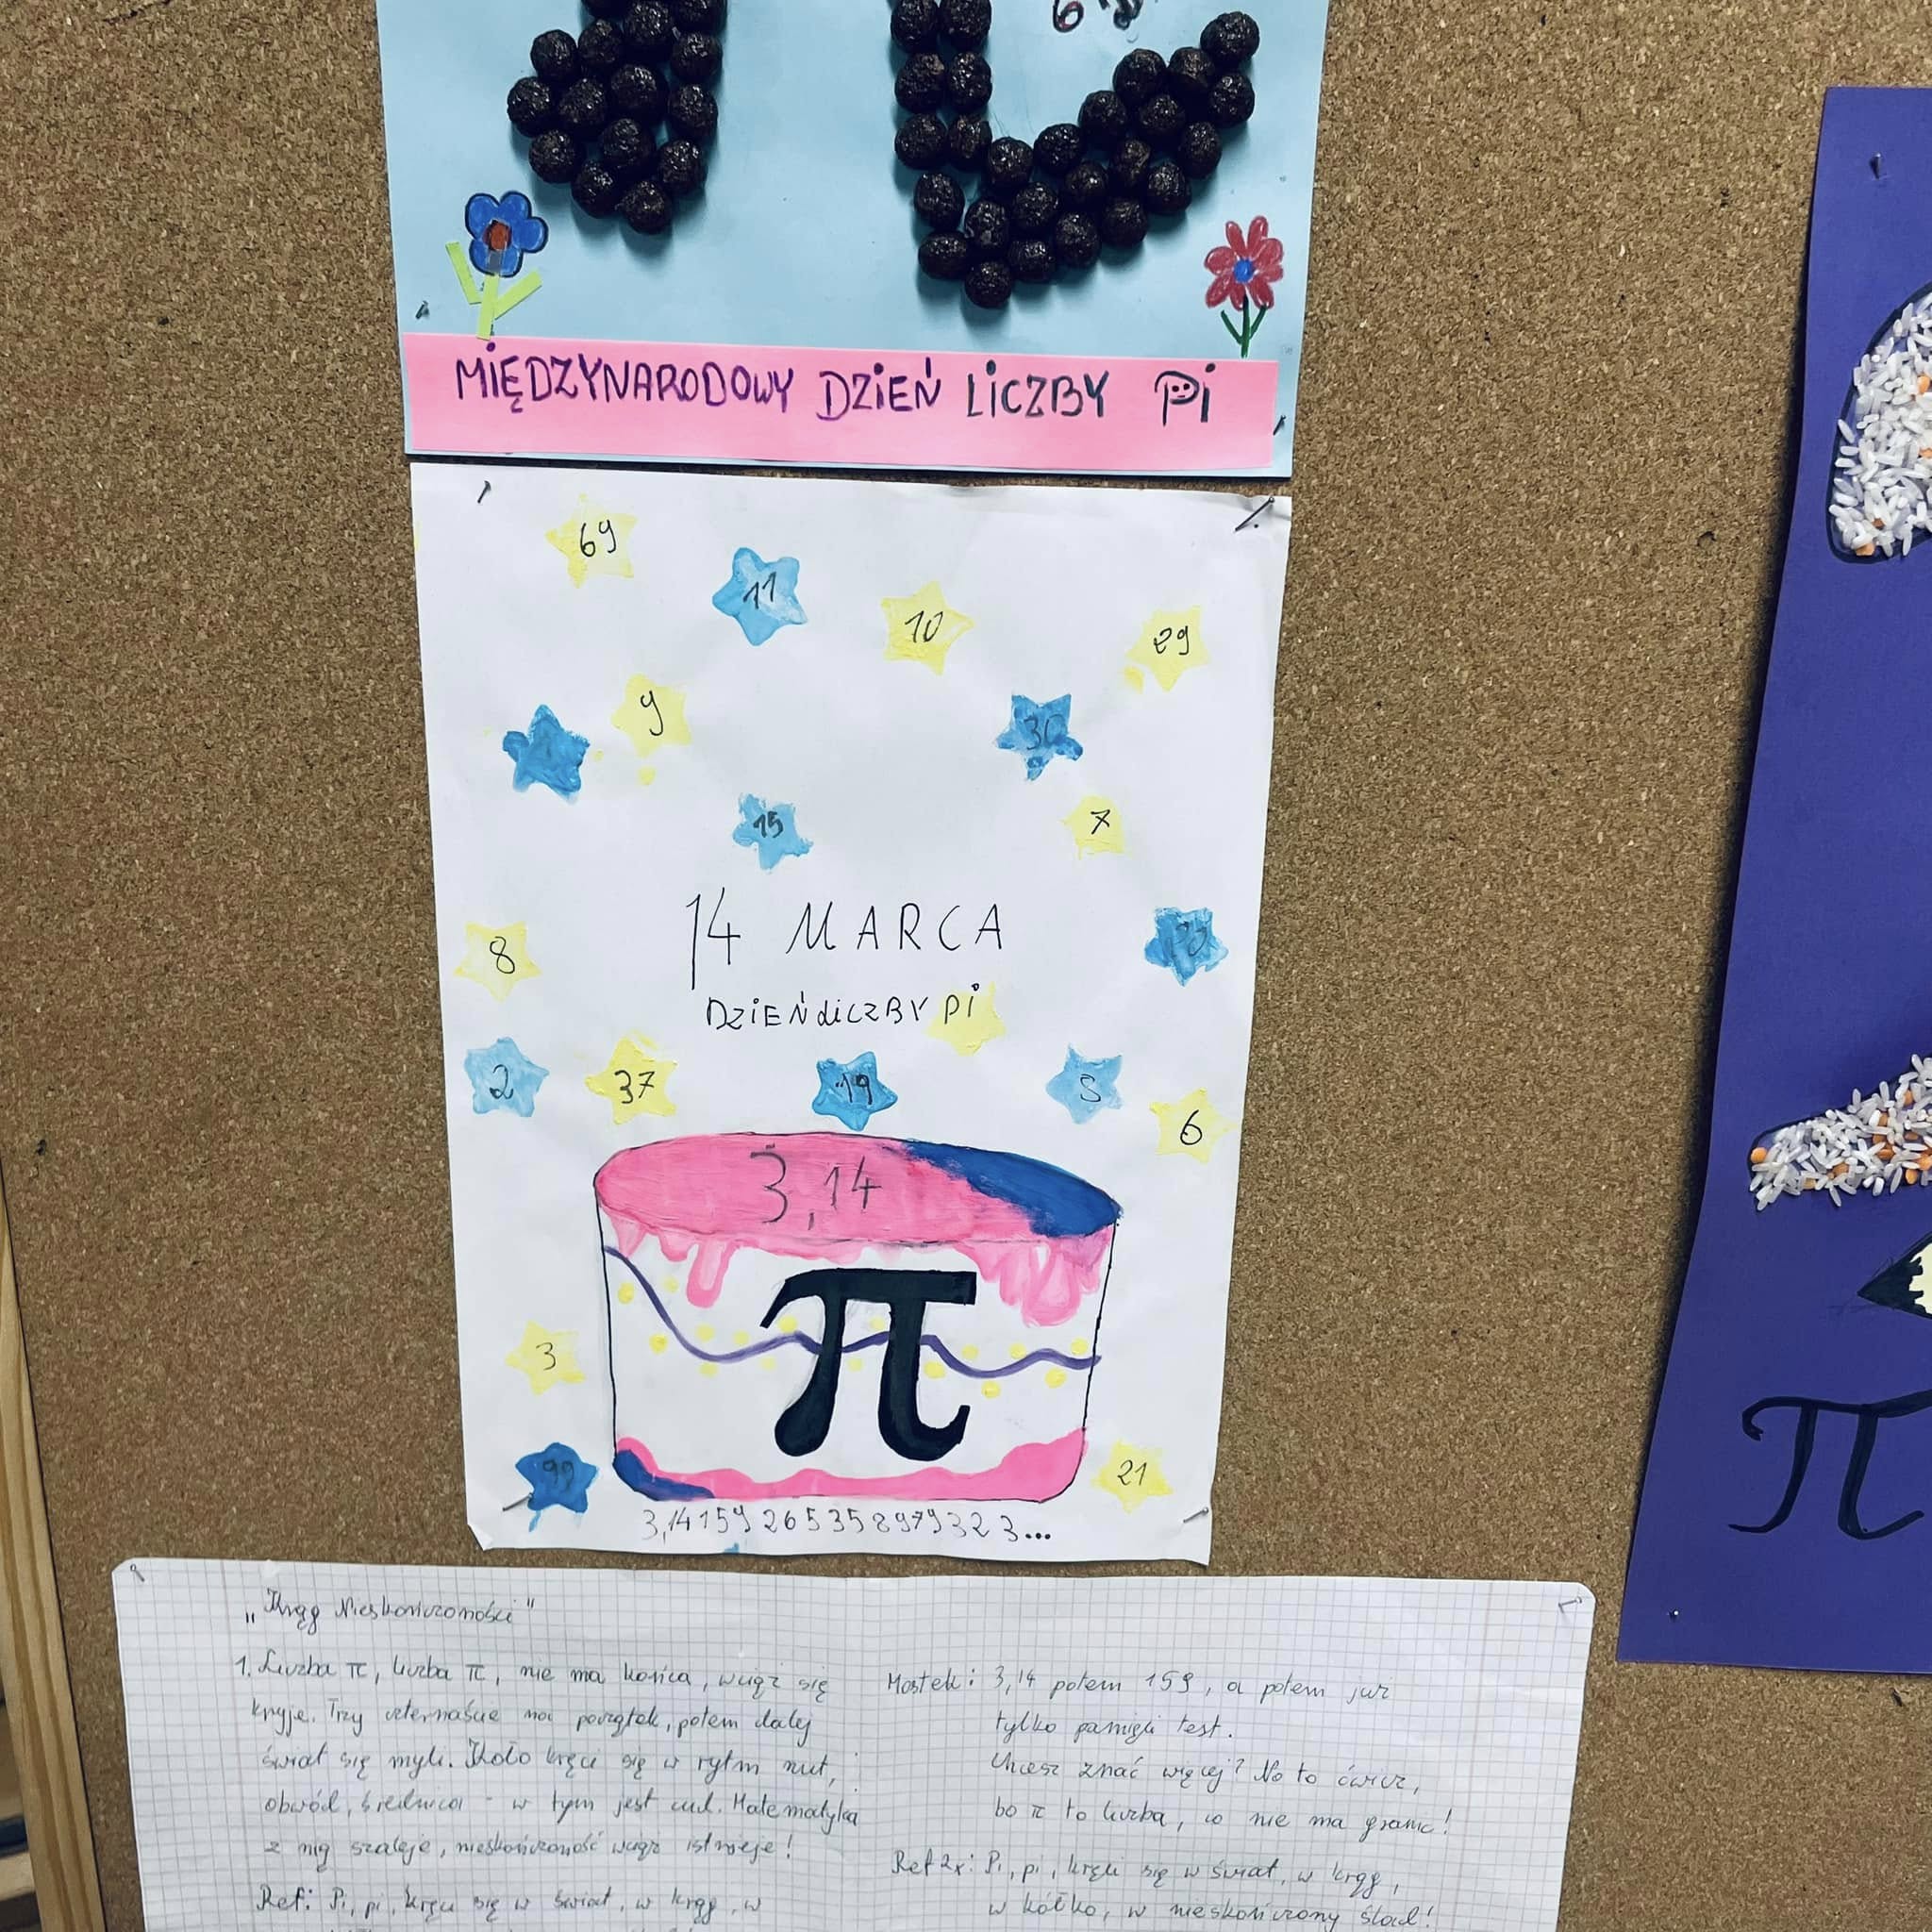 MIĘDZYNARODOWY DZIEŃ LICZBY Pi
69
11
10
29
9
30
15
7
14 MARCA
DZIEŃ LICZBY Pi
8
2
37
19
6
3,14
π
3
99
21
3,14159 26535897932 3...
π
„Krąg Nieskończoności"
1. Liczba π, liczba π, nie ma końca, wciąż się
kryje. Trzy czternaście na początek, potem dalej
świat się myli. Koło kręci się w rytm nut,
obwód, średnica - w tym jest cud. Matematyka
z nią szaleje, nieskończoność wciąż istnieje!
Ref: Pi, pi, kręci się w świat, w krąg, w
Mostek: 3,14 potem 159, a potem już
tylko pamięci test.
Chcesz znać więcej? No to ćwicz,
bo π to liczba, co nie ma granic!
Ref 2x: Pi, pi, kręci się w świat, w krąg,
w kółko, w nieskończony ślad!